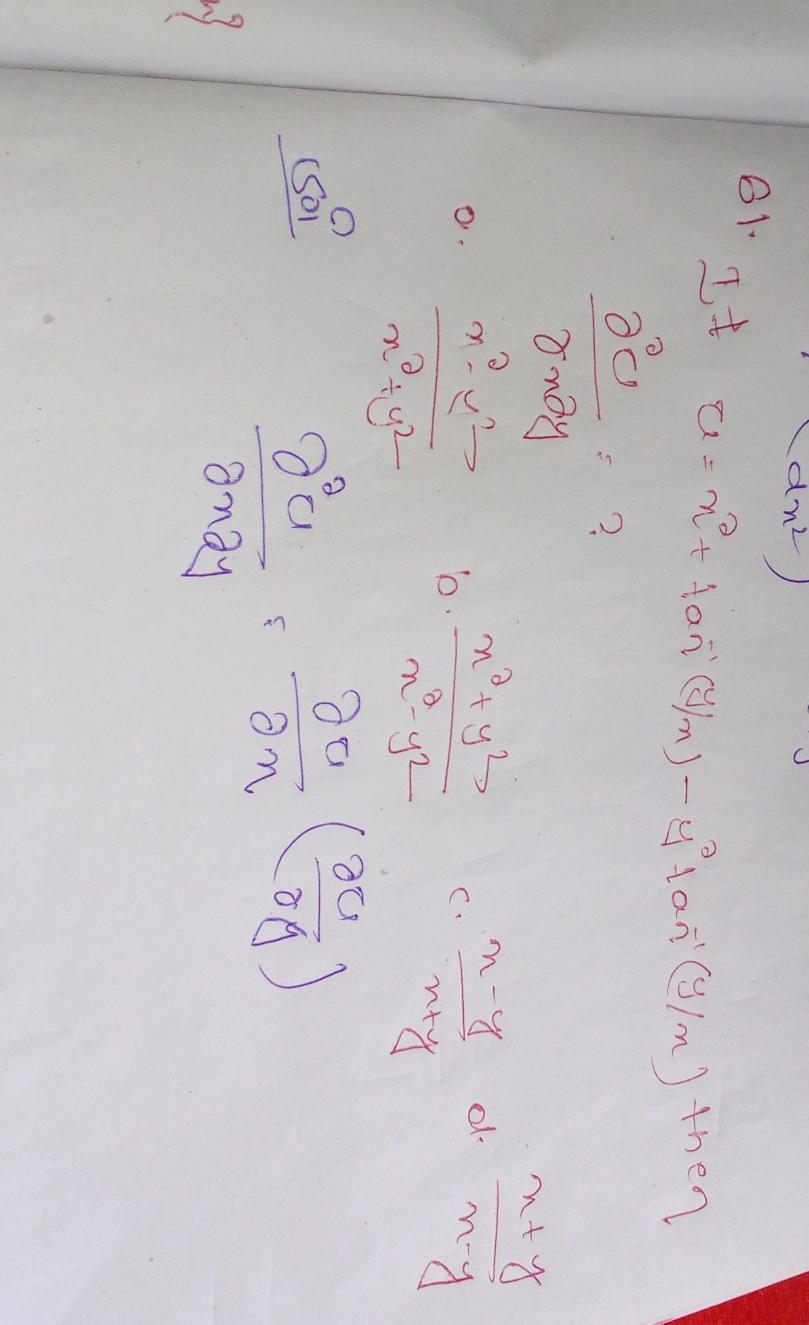 (dx²)
61. If u = x² + tan⁻¹(y/x) - y² tan⁻¹(y/x) then
∂²u/∂x∂y = ?
a. x²-y²/x²+y² b. x²+y²/x²-y² c. x-y/x+y d. x+y/x-y
Sol
∂²u/∂x∂y = ∂u/∂x (∂u/∂y)